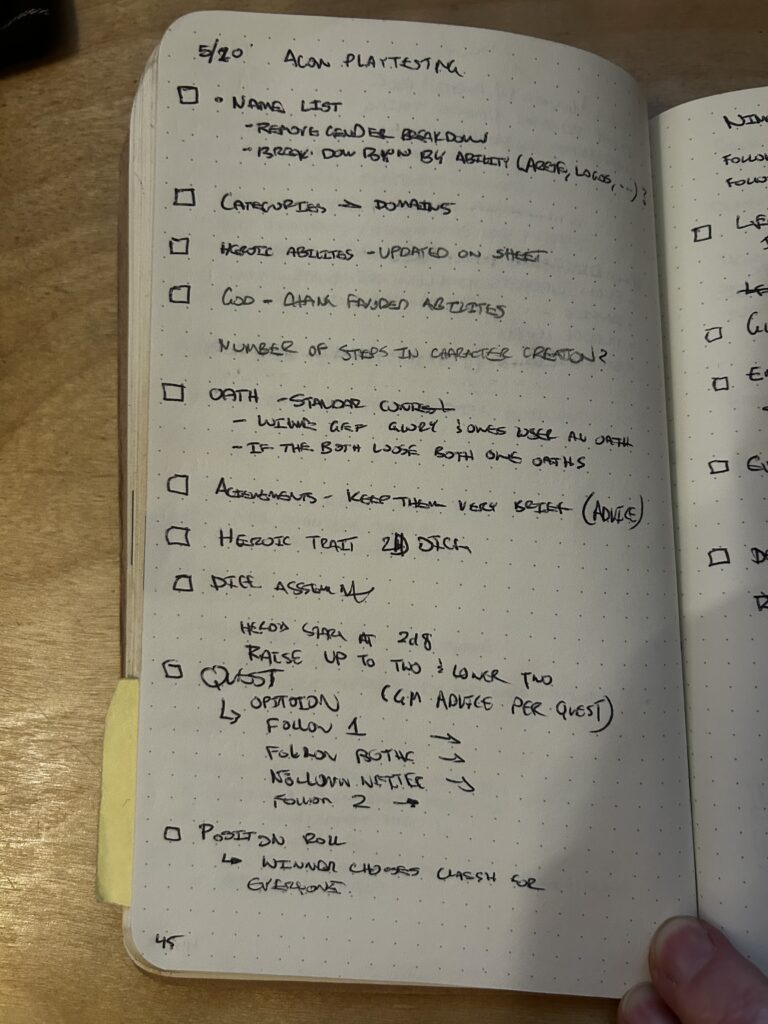 5/20 ACON PLAYTESTING
• NAME LIST
- REMOVE GENDER BREAKDOWN
- BREAK DOW BY ABILITY (ARETE, LOGOS, ...)?
CATEGORIES → DOMAINS
HEROIC ABILITES - UPDATED ON SHEET
GOD - ABILITES
NUMBER OF STEPS IN CHARACTER CREATION?
OATH - STANDAR CONTEST
- GET GLORY & OWES AN OATH
- IF THE BOTH LOOSE BOTH OATHS
ACIEVEMENTS - KEEP THEM VERY BRIEF (ADVICE)
HEROIC TRAIT
DICE
START AT 2d8
RAISE UP TO TWO & LOWER TWO
QUEST
↳ (GM ADVICE PER QUEST)
FOLLOW 1 →
FOLLOW →
→
FOLLOW 2 →
POSITON ROLL
↳ WINNER CHOOSES CLASH FOR
EVERYONE
45
FOLLO
FOLLO